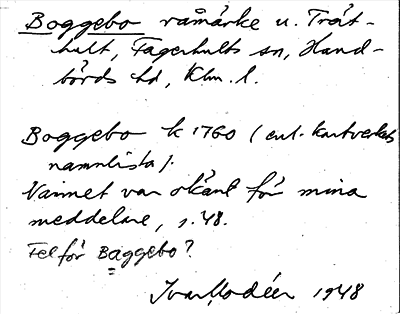 Boggebo råmärke u. Trät-
hult, Fagerhults sn, Hand-
börds hd, Klm. l.
Boggebo k 1760 (enl. kartverkets
namnlista).
Namnet var okänt för mina
meddelare, s. 48.
Fel för Baggebo?
Ivar Modéer 1948